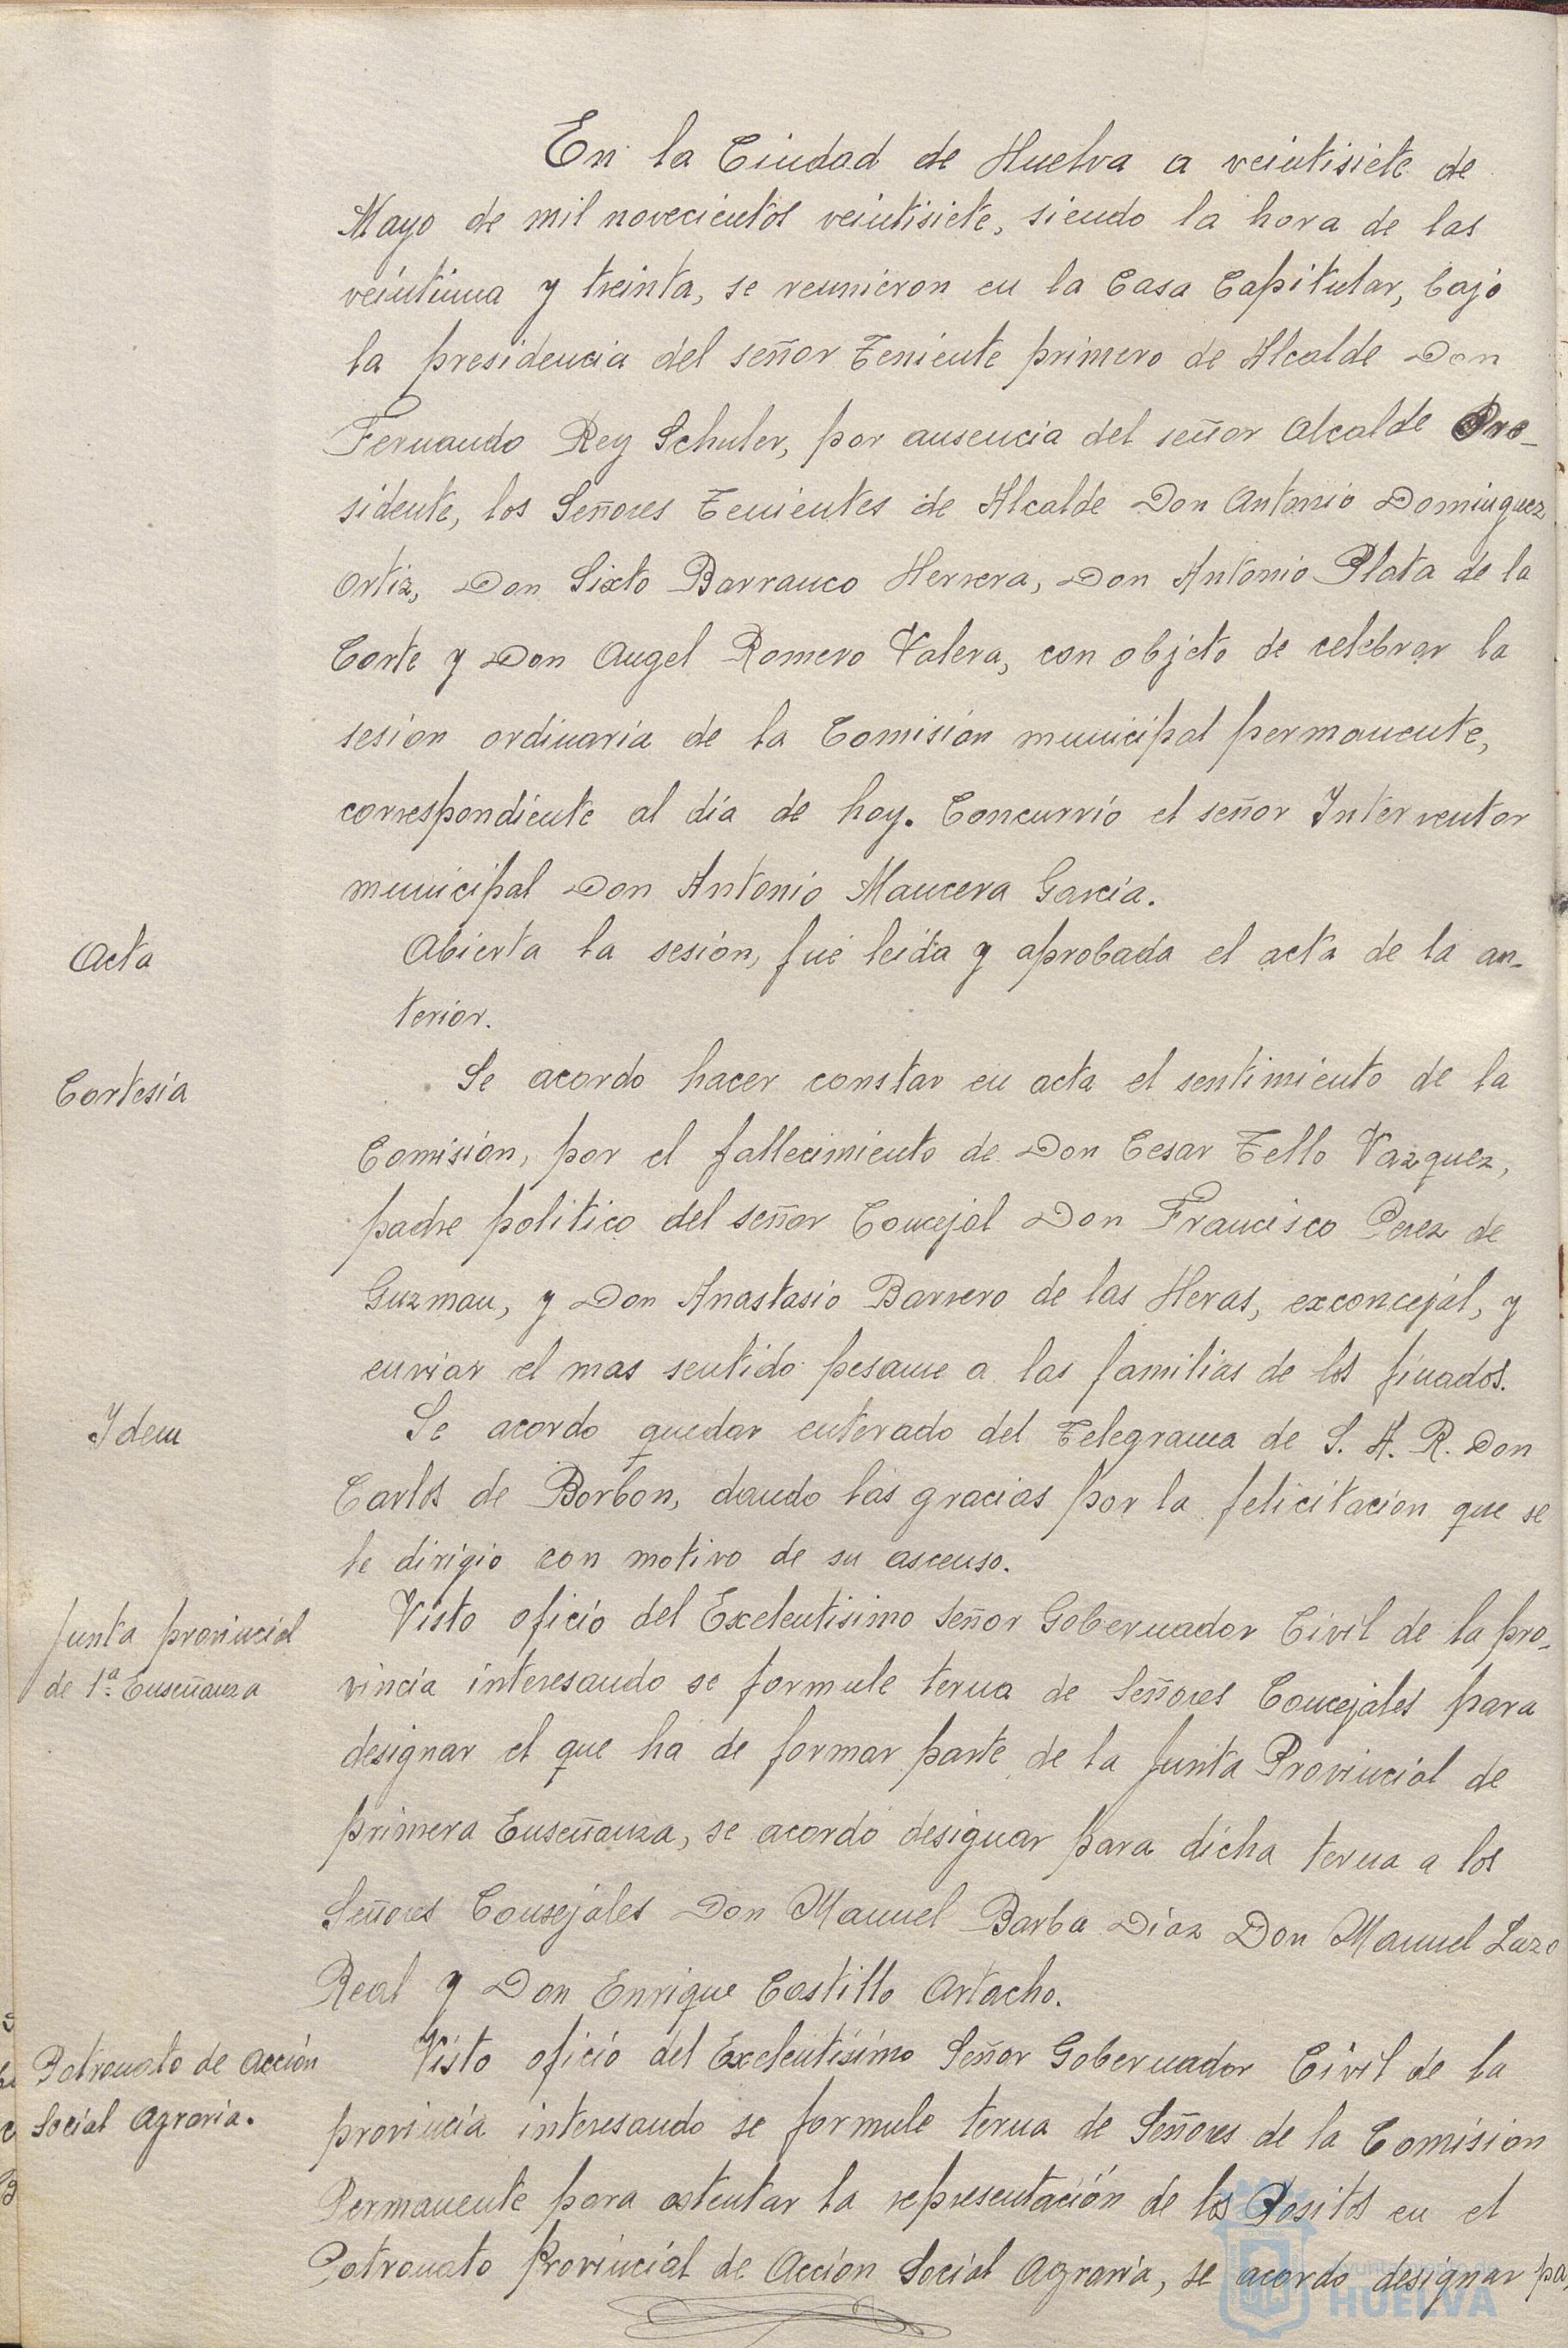 En la Ciudad de Huelva a veintisiete de
Mayo de mil novecientos veintisiete, siendo la hora de las
veintiuna y treinta, se reunieron en la Casa Capitular, bajo
la presidencia del señor Teniente primero de Alcalde Don
Fernando Rey Schuler, por ausencia del señor Alcalde Pre-
sidente, los Señores Tenientes de Alcalde Don Antonio Dominguez
Ortiz, Don Sixto Barranco Herrera, Don Antonio Plata de la
Corte y Don Angel Romero Valera, con objeto de celebrar la
sesión ordinaria de la Comisión municipal permanente,
correspondiente al día de hoy. Concurrió el señor Interventor
municipal Don Antonio Mancera García.
Acta
Abierta la sesión, fué leida y aprobada el acta de la an-
terior.
Cortesía
Se acordo hacer constar en acta el sentimiento de la
Comisión, por el fallecimiento de Don Cesar Tello Vazquez,
padre politico del señor Concejal Don Francisco Perez de
Guzman, y Don Anastasio Barrero de las Heras, exconcejal, y
enviar el mas sentido pesame a las familias de los finados.
Idem
Se acordo quedar enterado del Telegrama de S. A. R. Don
Carlos de Borbon, dando las gracias por la felicitacion que se
le dirigio con motivo de su ascenso.
Junta provincial
de 1ª Enseñanza
Visto oficio del Excelentisimo Señor Gobernador Civil de la pro-
vincia interesando se formule terna de Señores Concejales para
designar el que ha de formar parte de la Junta Provincial de
primera Enseñanza, se acordó designar para dicha terna a los
Señores Consejales Don Manuel Barba Díaz Don Manuel Lazo
Real y Don Enrique Castillo Artacho.
Patronato de Acción
Social Agraria.
Visto oficio del Excelentísimo Señor Gobernador Civil de la
provincia interesando se formule terna de Señores de la Comisión
Permanente para ostentar la representación de los Positos en el
Patronato Provincial de Acción Social Agraria, se acordo designar pa
HUELVA